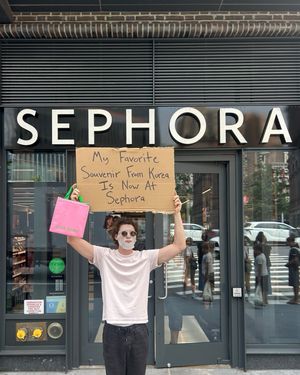 SEPHORA
My Favorite
Souvenir From Korea
Is Now At
Sephora